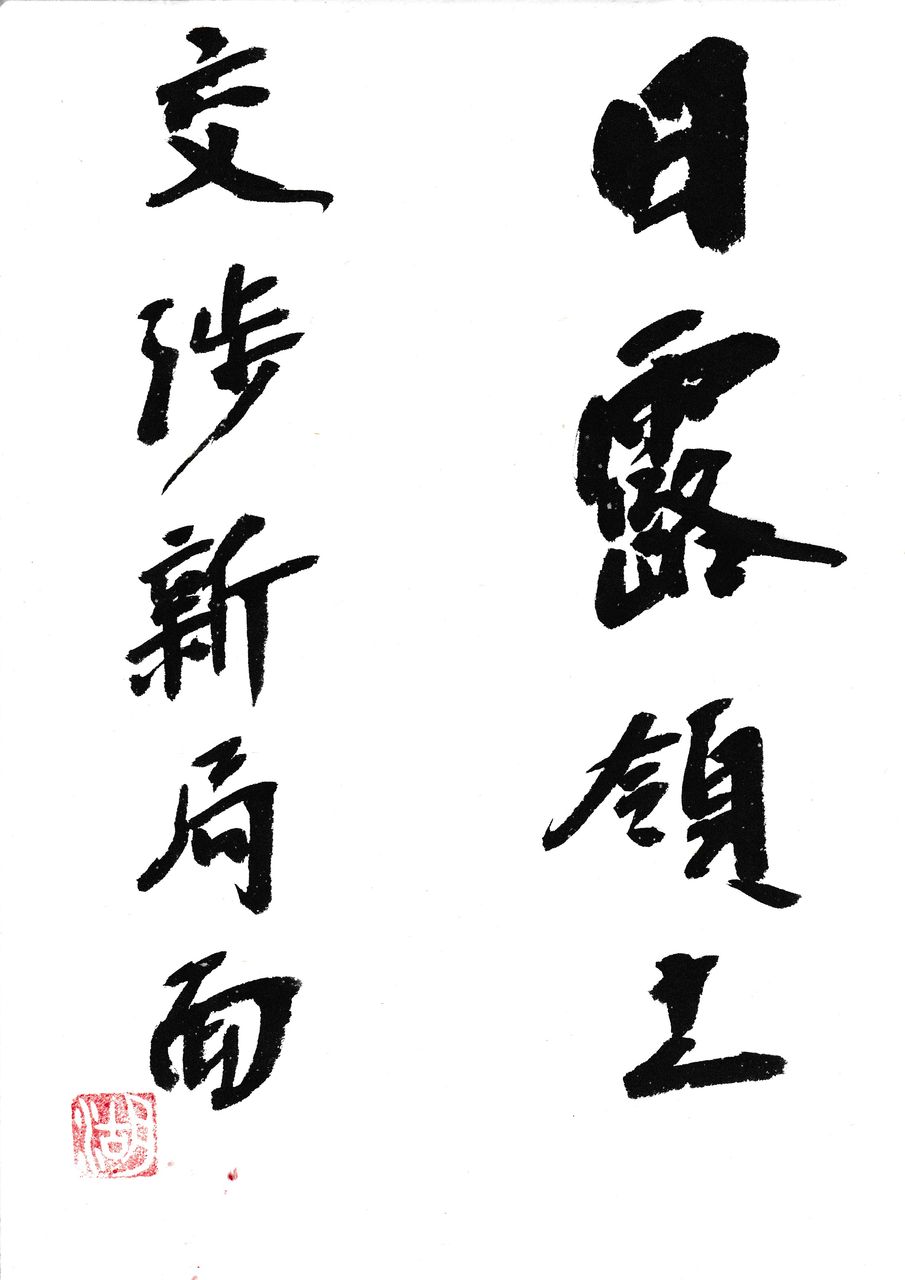 日露領土
交渉新局面
湖